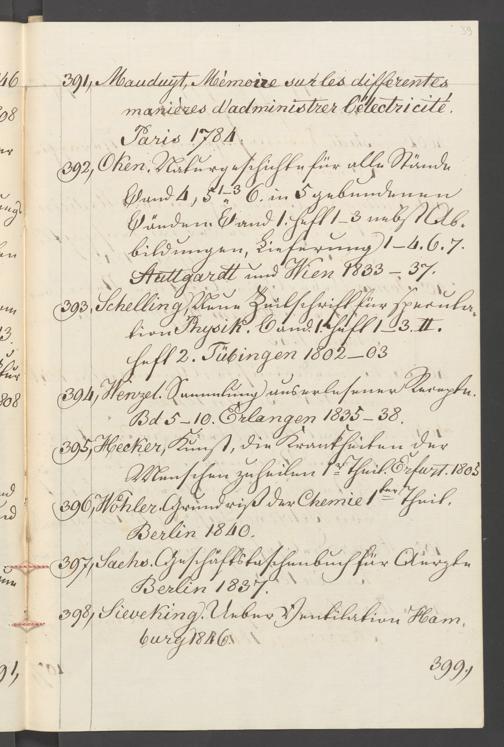 39
391, Mauduyt, Mémoire sur les différentes
manières d'administrer l'électricité.
Paris 1784
392, Oken. Naturgeschichte für alle Stände
Band 4, 5 1-3 6. in 5 gebundenen
Bänden. Band 1. Heft 1-3 nebst Ab-
bildungen, Lieferung 1-4. 6. 7.
Stuttgardt und Wien 1833-37.
393, Schelling, Neue Zeitschrift für specula-
tion Physik. Band 1. Heft 1-3. II.
Heft 2. Tübingen 1802-03
394, Wenzel. Sammlung auserlesener Recepte.
Bd 5-10. Erlangen 1835-38.
395, Hecker, Kunst, die Krankheiten der
Menschen zu heilen 1r Theil. Erfurt. 1805
396, Wöhler. Grundriß der Chemie 1ter Theil.
Berlin 1840.
397, Sachs. Geschäftstaschenbuch für Aerzte
Berlin 1837.
398, Sieveking. Ueber Ventilation Ham-
burg 1846.
399,